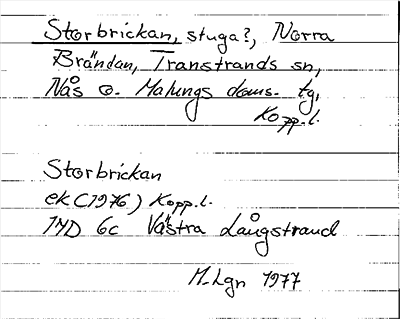 Storbrickan, stuga?, Norra
Brändan, Transtrands sn,
Nås o. Malungs doms. tg,
Kopp.l.
Storbrickan
ek (1976) Kopp.l.
14D 6c Västra Långstrand
M.Lgn 1977